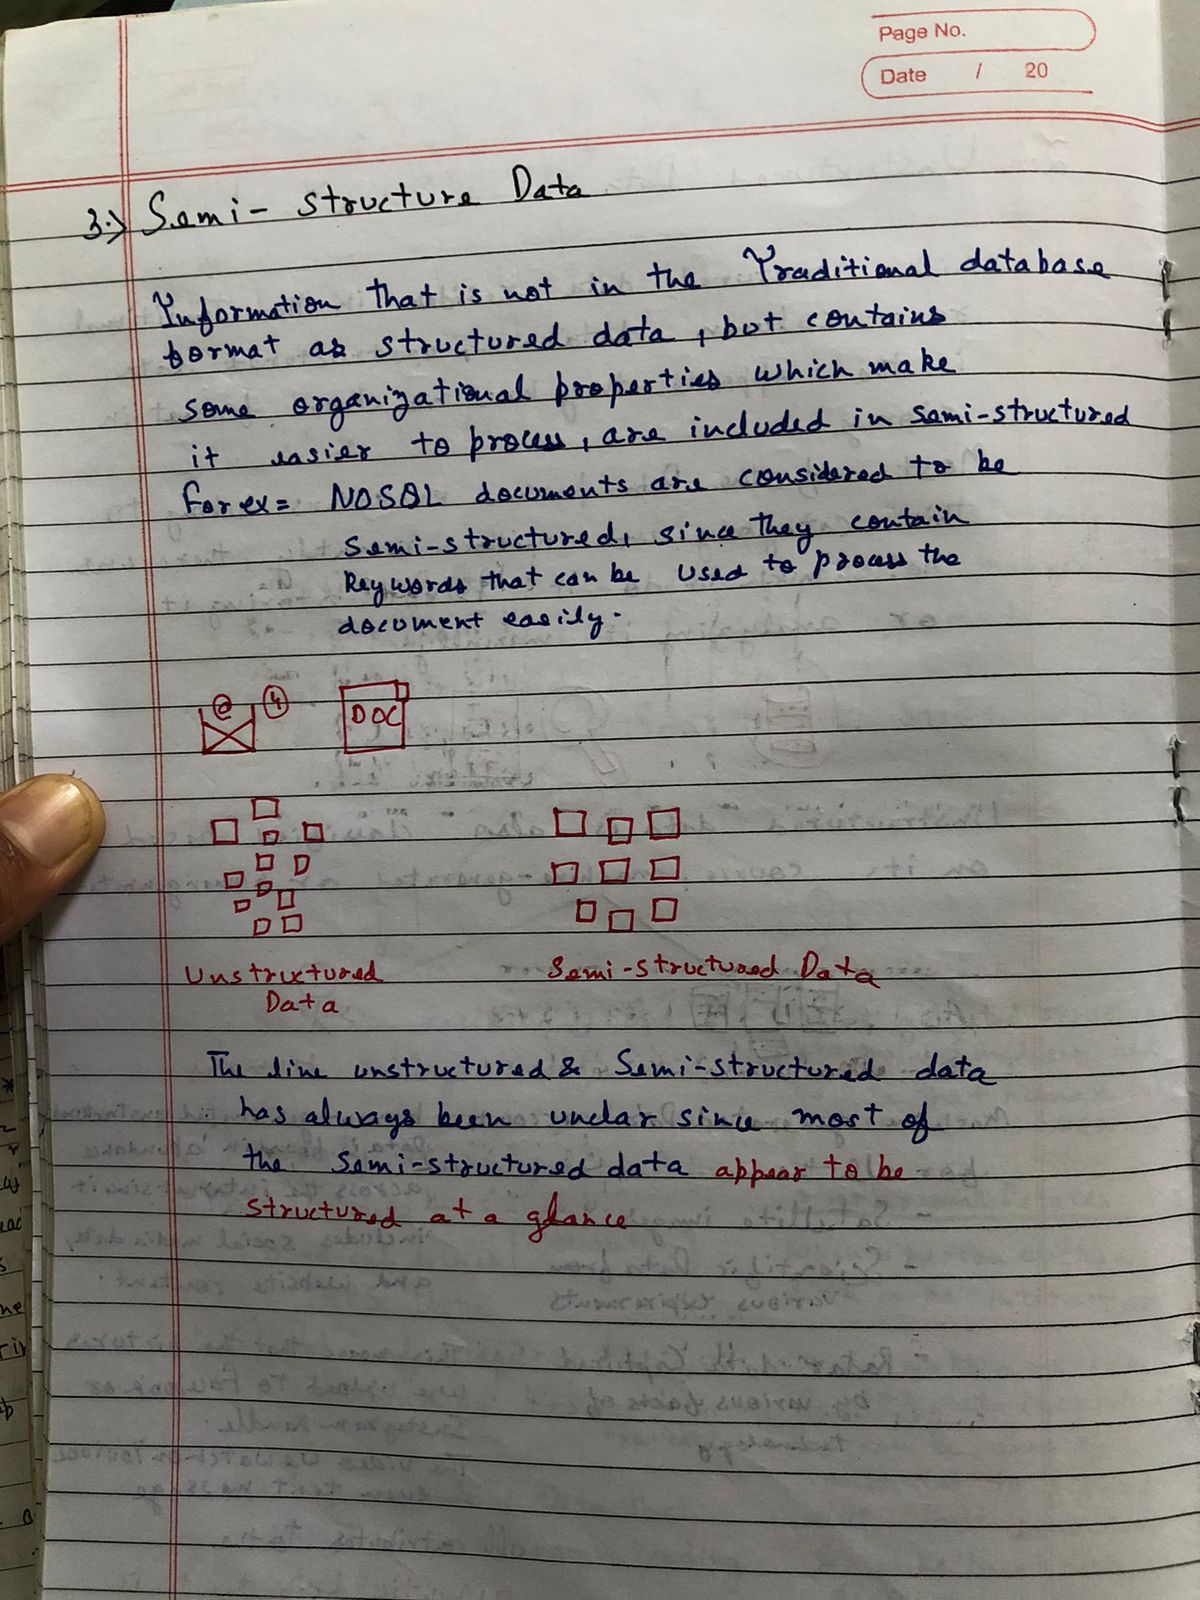 Page No.
Date / 20
3.) Semi- Structure Data
Information that is not in the Traditional database
format as structured data, but contains
some organizational properties which make
it easier to process, are included in semi-structured
For ex = NOSQL documents are considered to be
semi-structured, since they contain
Keywords that can be used to process the
document easily.
@ 4 DOC
Unstructured
Data
Semi-structured Data
The line unstructured & Semi-structured data
has always been unclar since most of
the semi-structured data appear to be
structured at a glance